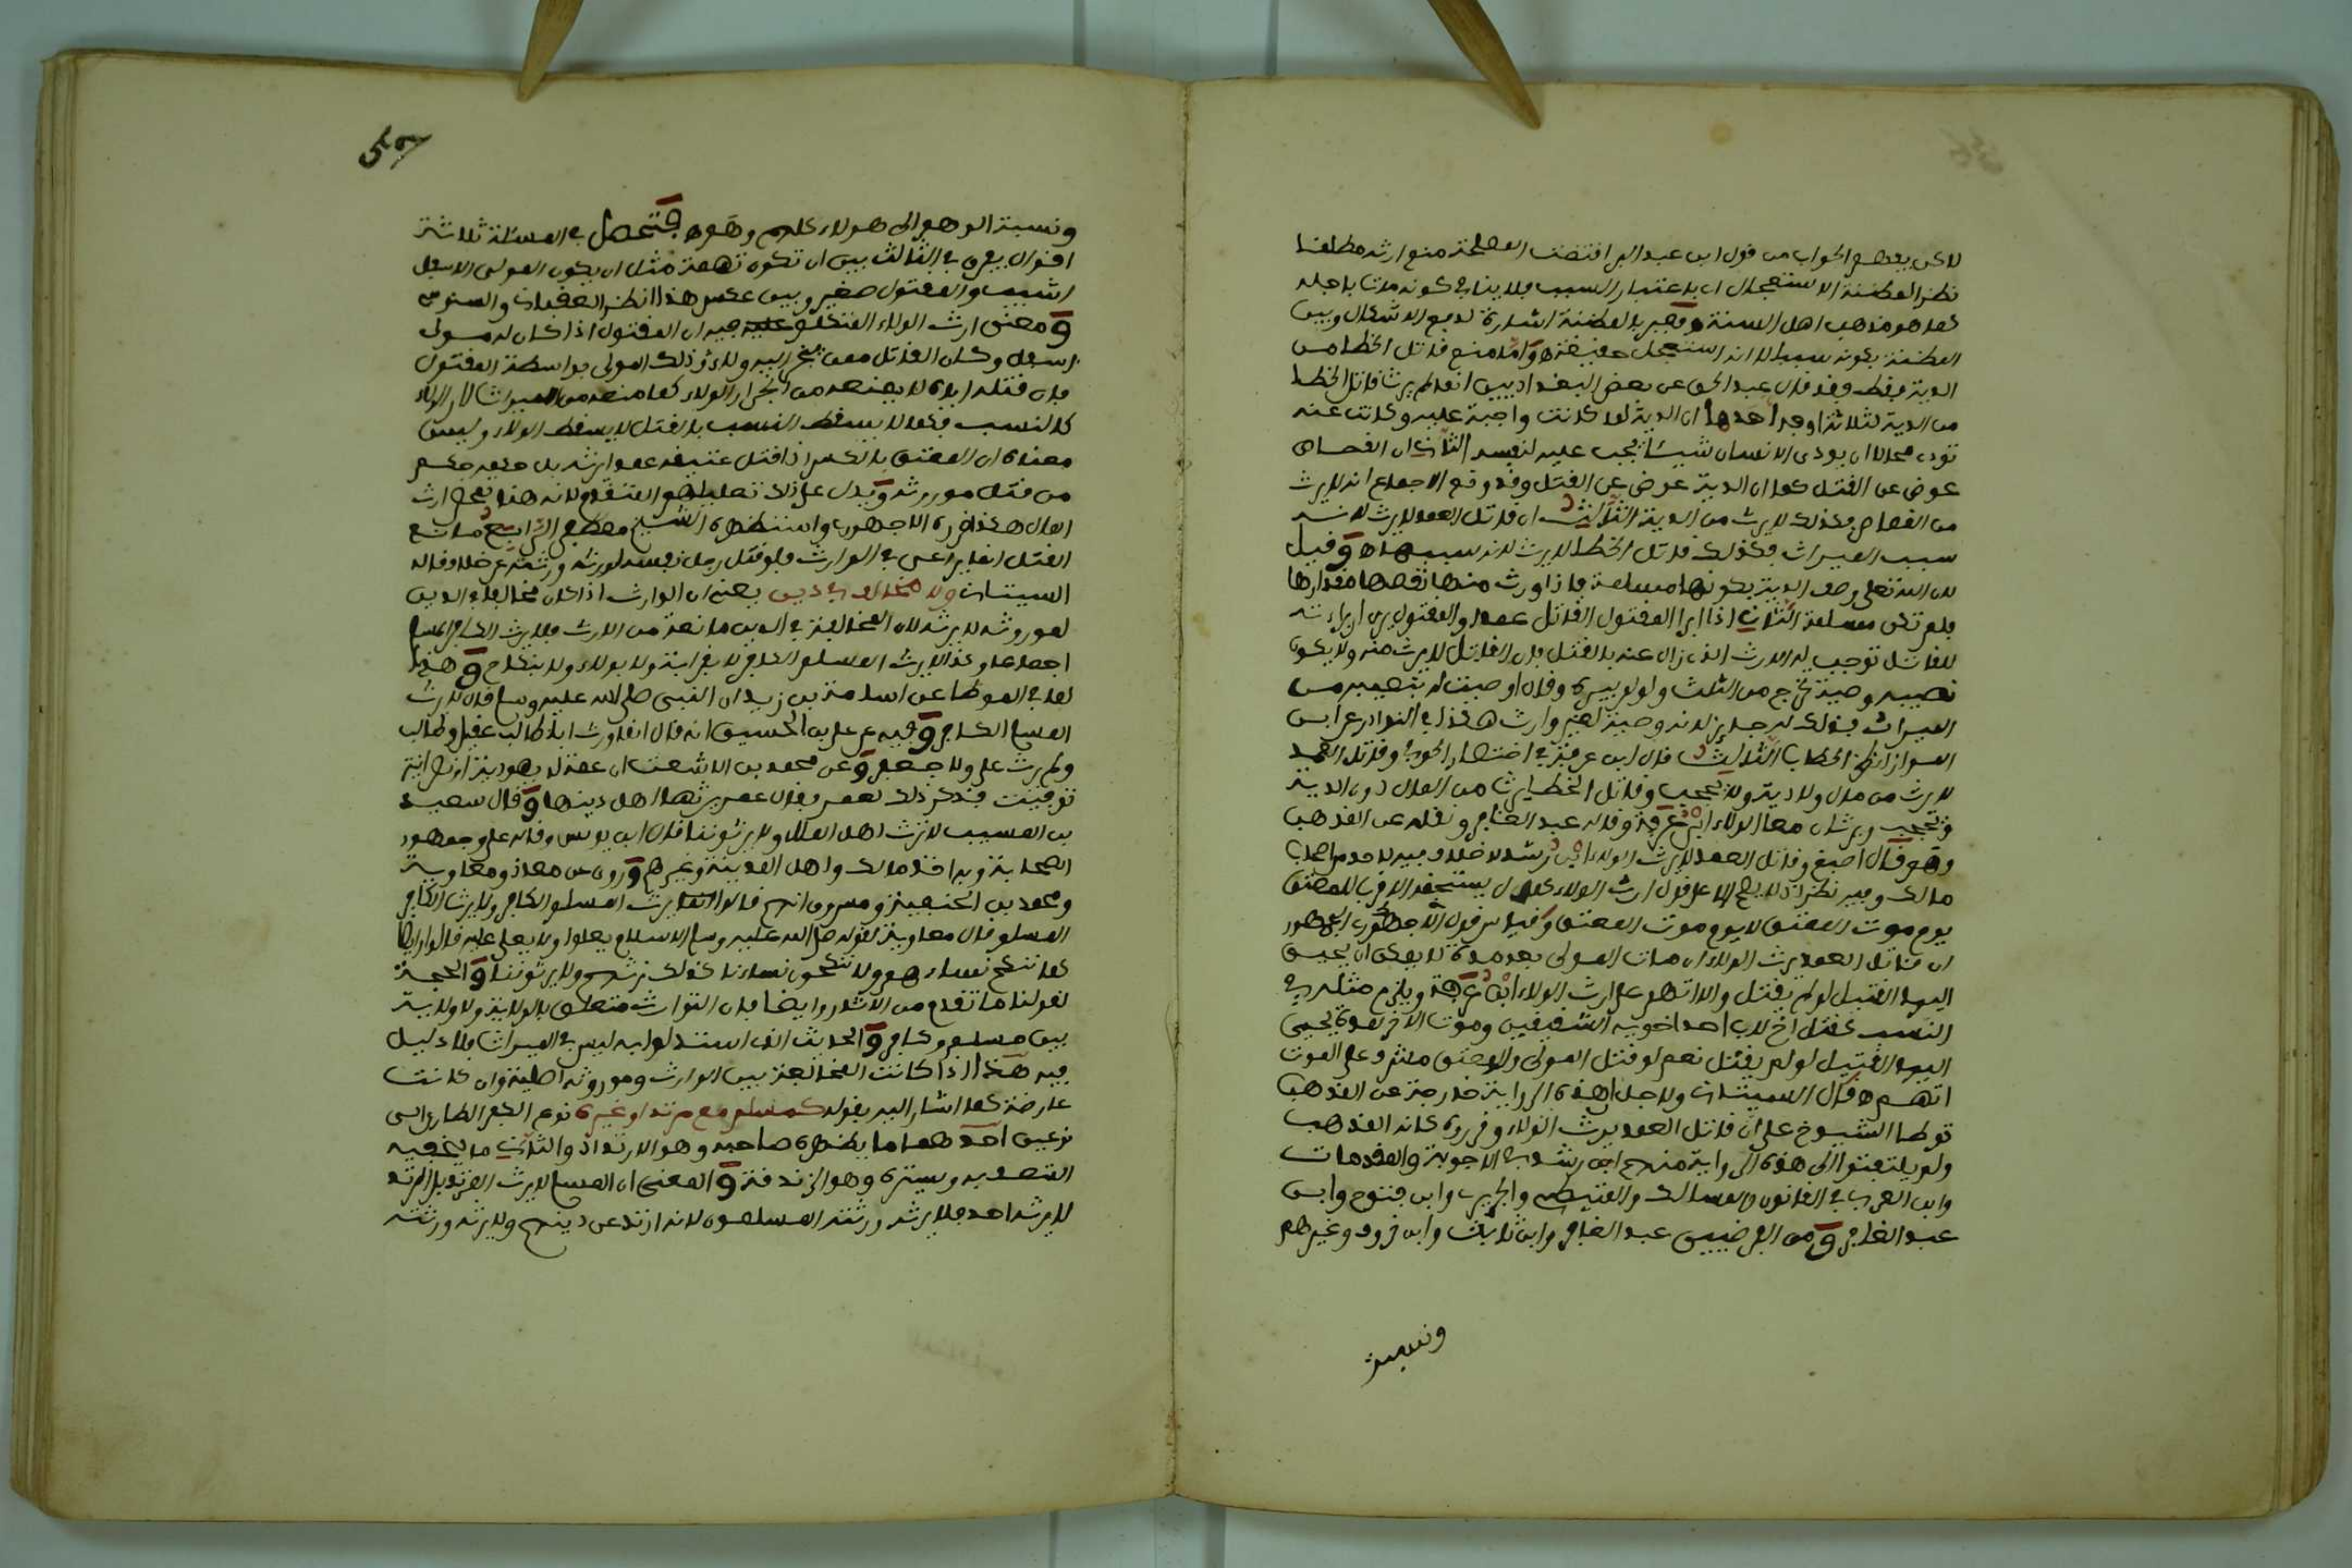 لاكن يعطهم الجواب من قول ابن عبد البر اقتضت المصلحة منع ارثه مطلقا
نظرا لمظنة الاستعجال اي باعتبار السبب فلا ينافي كونه مات باجله
كما هو مذهب اهل السنة وتعبير بالمظنة اشارة لدفع الاشكال وبين
المظنة بكونه سببا لا انه استعجل حقيقة وانما منع قاتل الخطا من
الدية فقط فقد قال عبد الحق عن بعض البغداديين انما لم يرث قاتل الخطا
من الدية لثلاثة اوجه احدها ان الدية لما كانت واجبة عليه وكانت عنه
تودى محالا ان يودي الانسان شيئا يجب عليه لنفسه الثاني ان القصاص
عوض عن القتل كما ان الدية عوض عن القتل وقد وقع الاجماع انه لا يرث
من القصاص فكذلك لا يرث من الدية الثالث ان قاتل العمد لا يرث لانه
سبب الميراث فكذلك قاتل الخطا لا يرث لانه سببها وقيل
لان الله تعلى وصف الدية بكونها مسلمة فاذا ورث منها نقصها مقدارها
فلم تكن مسلمة الثاني اذا ابرا المفتول القاتل عمدا والمقتول يرى ابراءه
للقاتل توجب له الارث الذي زال عنه بالقتل فان القاتل لا يرث منه ولا يكون
نصيبه وصية تخرج من الثلث ولو لم يبره وقال اوصيت له بنصيبه من
الميراث فذلك له جائز لانه وصية لغير وارث هكذا في النوادر عن ابن
المواز انظر الحطاب الثالث قال ابن عرفة في اختصار الحوفي وقاتل العمد
لا يرث من مال ولا دية ولا يحجب وقاتل الخطا يرث من المال دون الدية
ويحجب ويرثان معا الولاء ابن عرفة وقاله عبد الغافر ونقله عن المذهب
وهو قال اصبغ وقاتل العمد لا يرث الولاء ابن رشد لا خلاف فيه لاحد من اصحاب
مالك وفيه نظر اذ لا يصح الا على قول ارث الولاء كمال يستحقه الاقرب للمعتق
يوم موت المعتق لا يوم موت المعتق وقياس قول الاجمهوري الجمهور
ان قاتل العمد يرث الولاء ان مات المولى بعد مدة لا يمكن ان يحيى
اليها القتيل لو لم يقتل والا اتهم على ارث الولاء ابن عرفة ويلزم مثله في
النسب كقتل اخ لاب احد اخويه الشقيقين وموت الاخر بعد مدة يحيى
اليها القتيل لو لم يقتل نعم لو قتل المولى والمعتق مشرف على الموت
اتهم قال السيتاني ولاجل هذه الرواية خارجة عن المذهب
تواطا الشيوخ على ان قاتل العمد يرث الولاء وقرروه كانه المذهب
ولم يلتفتوا الى هذه الرواية منهم ابن رشد في الاجوبة والمقدمات
وابن العربي في القانون والمسالك والقبيطي والجزيري وابن فتوح وابن
عبد الغافر ومن الفرضيين عبد الغافر وابن ثابت وابن فرود وغيرهم
ونسبة
ونسبة الوهم الى هولاء كلهم وهم فتحصل في المسئلة ثلاثة
اقوال يفرق في الثالث بين ان تكون تهمة مثل ان يكون المولى الاسفل
اشيب والمقتول صغير وبين عكس هذا انظر العقباني والسنوسي
ومعنى ارث الولاء المختلف فيه ان المقتول اذا كان له مولى
اسفل وكان القاتل ممن ينجر اليه ولاء ذلك المولى بواسطة المقتول
فان قتله اياه لا يمنعه من انجرار الولاء كما منعه من الميراث لان الولاء
كالنسب فكما لا يسقط النسب بالقتل لا يسقط الولاء وليس
معناه ان المعتق بالكسر اذا قتل عتيقه عمدا يرثه بل حكمه حكم
من قتل موروثه ويدل على ذلك تعليلهم المتقدم لانه هذا معنى ارث
المال هكذا قرره الاجهوري واستظهره الشيخ مصطفى الرابع مانع
القتل انما يراعى في الوارث فلو قتل رجل نفسه لورثه ورثته من غير خلاف قاله
السيتاني ولا مخالف في دين يعني ان الوارث اذا كان مخالفا في الدين
لموروثه لا يرثه لان المخالفة في الدين مانعة من الارث فلا يرث الكافر المسلم
اجماعا وكذا لا يرث المسلم الكافر لا بقرابة ولا بولاء ولا بنكاح وهذا
لما في الموطا عن اسامة بن زيد ان النبي صلى الله عليه وسلم قال لا يرث
المسلم الكافر وفيه عن علي بن الحسين انه قال انما ورث ابا طالب عقيل وطالب
ولم يرث علي ولا جعفر وعن محمد بن الاشعث ان عمة له يهودية او نصرانية
توفيت فذكر ذلك لعمر فقال عمر يرثها اهل دينها وقال سعيد
بن المسيب لا نرث اهل الملل ولا يرثوننا قال ابن يونس وقاله علي وجمهور
الصحابة وبه اخذ مالك واهل المدينة وغيرهم وروي عن معاذ ومعاوية
ومحمد بن الحنفية ومسروق انهم قالوا يرث المسلم الكافر ولا يرث الكافر
المسلم قال معاوية لقوله صلى الله عليه وسلم الاسلام يعلو ولا يعلى عليه قالوا وايضا
كما ننكح نساءهم ولا ينكحون نساءنا كذلك نرثهم ولا يرثوننا والحجة
لقولنا ما تقدم من الاثار وايضا فان التوارث متعلق بالولاية ولا ولاية
بين مسلم وكافر والحديث الذي استدلوا به ليس في الميراث فلا دليل
فيه هذا اذا كانت المخالفة بين الوارث وموروثه اصلية وان كانت
عارضة كما اشار اليه بقوله كمسلم مع مرتد او غيره نوع الكفر الطارئ الى
نوعين احدهما ما يظهره صاحبه وهو الارتداد والثاني ما يخفيه
المتصف به ويستره وهو الزندقة والمعنى ان المسلم لا يرث المرتد بل المرتد
لا يرثه احد فلا يرثه ورثته المسلمون لانه ارتد عن دينهم ولا يرثه ورثته